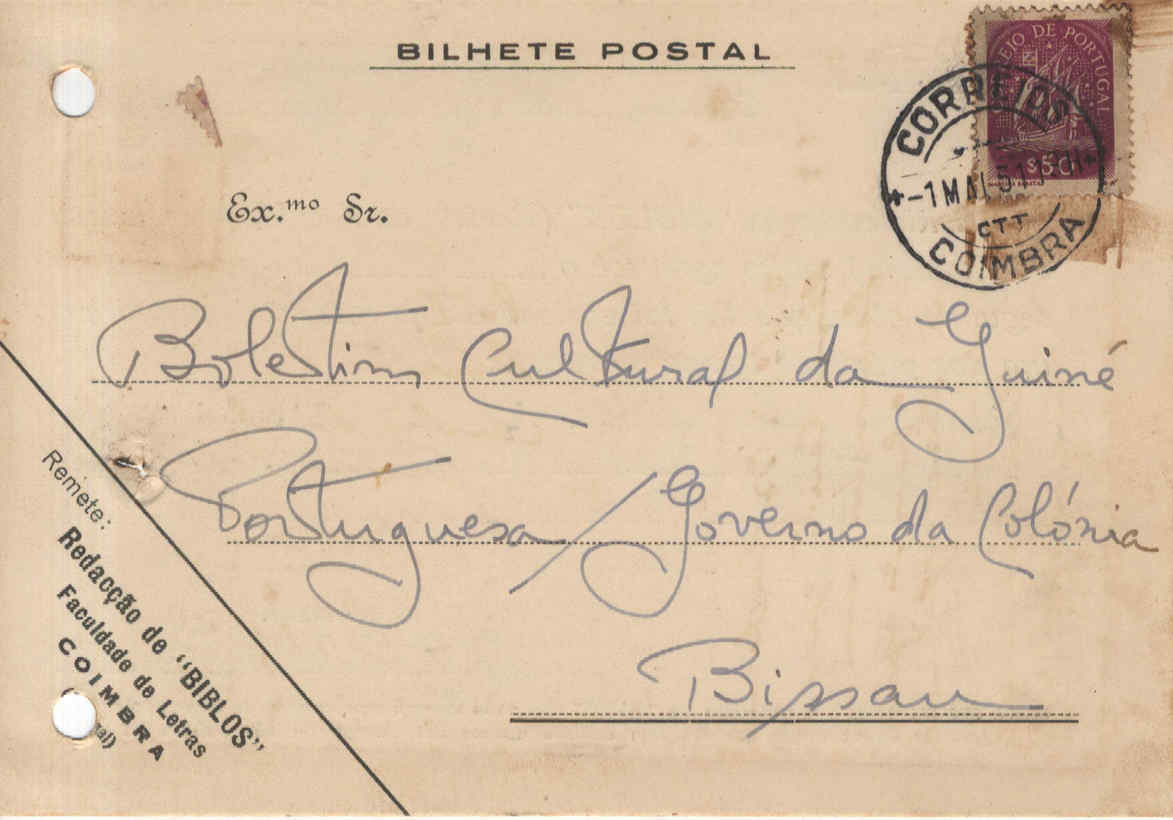 BILHETE POSTAL
CORREIO DE PORTUGAL
$50
CORREIOS
-1 MAI. 51
CTT
COIMBRA
Ex.mo Sr.
Boletim Cultural da Guiné
Portuguesa / Governo da Colónia
Bissau
Remete:
Redacção de "BIBLOS"
Faculdade de Letras
COIMBRA